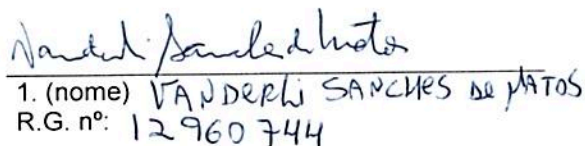 Vanderli Sanches de Matos
1. (nome) VANDERLi SANCHES De MATOS
R.G. nº: 12960744